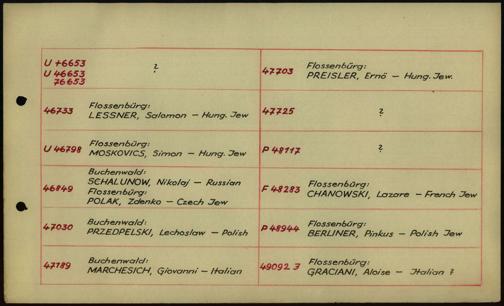 U +6653
U 46653
76653
?
46733
Flossenbürg:
LESSNER, Salamon – Hung. Jew
U 46798
Flossenbürg:
MOSKOVICS, Simon – Hung. Jew
46849
Buchenwald:
SCHALUNOW, Nikolaj – Russian
Flossenbürg:
POLAK, Zdenko – Czech Jew
47030
Buchenwald:
PRZEDPELSKI, Lechoslaw – Polish
47189
Buchenwald:
MARCHESICH, Giovanni – Italian
47703
Flossenbürg:
PREISLER, Ernö – Hung. Jew.
47725
?
P 48117
?
F 48283
Flossenbürg:
CHANOWSKI, Lazare – French Jew
P 48944
Flossenbürg:
BERLINER, Pinkus – Polish Jew
49092 J
Flossenbürg:
GRACIANI, Aloise – Italian ?